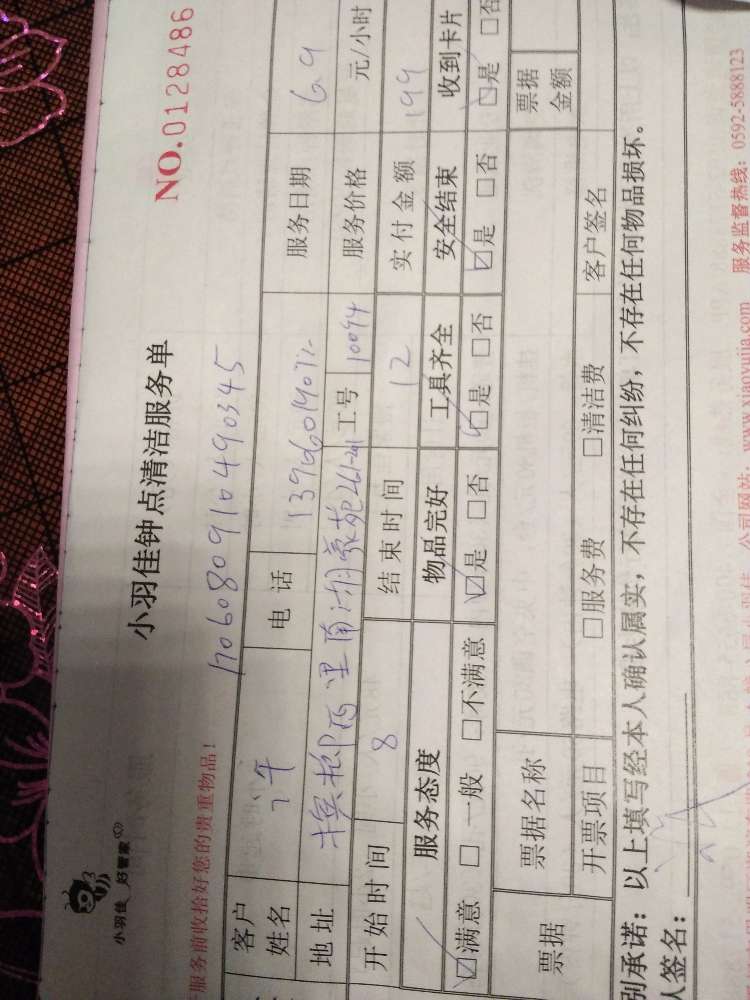 小羽佳 好管家
小羽佳钟点清洁服务单
NO.0128486
服务前收拾好您的贵重物品!
170608091049​0345
客户姓名 电话 服务日期 6.9
地址 槟榔西里南湖豪苑261-201 工号 10094 服务价格 元/小时
开始时间 8 结束时间 12 实付金额 199
服务态度 物品完好 工具齐全 安全结束 收到卡片
☑满意 □一般 □不满意 ☑是 □否 ☑是 □否 ☑是 □否 ☑是 □否
票据 票据名称 票据金额
开票项目 □服务费 □清洁费 客户签名
别承诺：以上填写经本人确认属实，不存在任何纠纷，不存在任何物品损坏。
签名：
公司网站 www.xiaoyujia.com 服务监督热线：0592-5888123